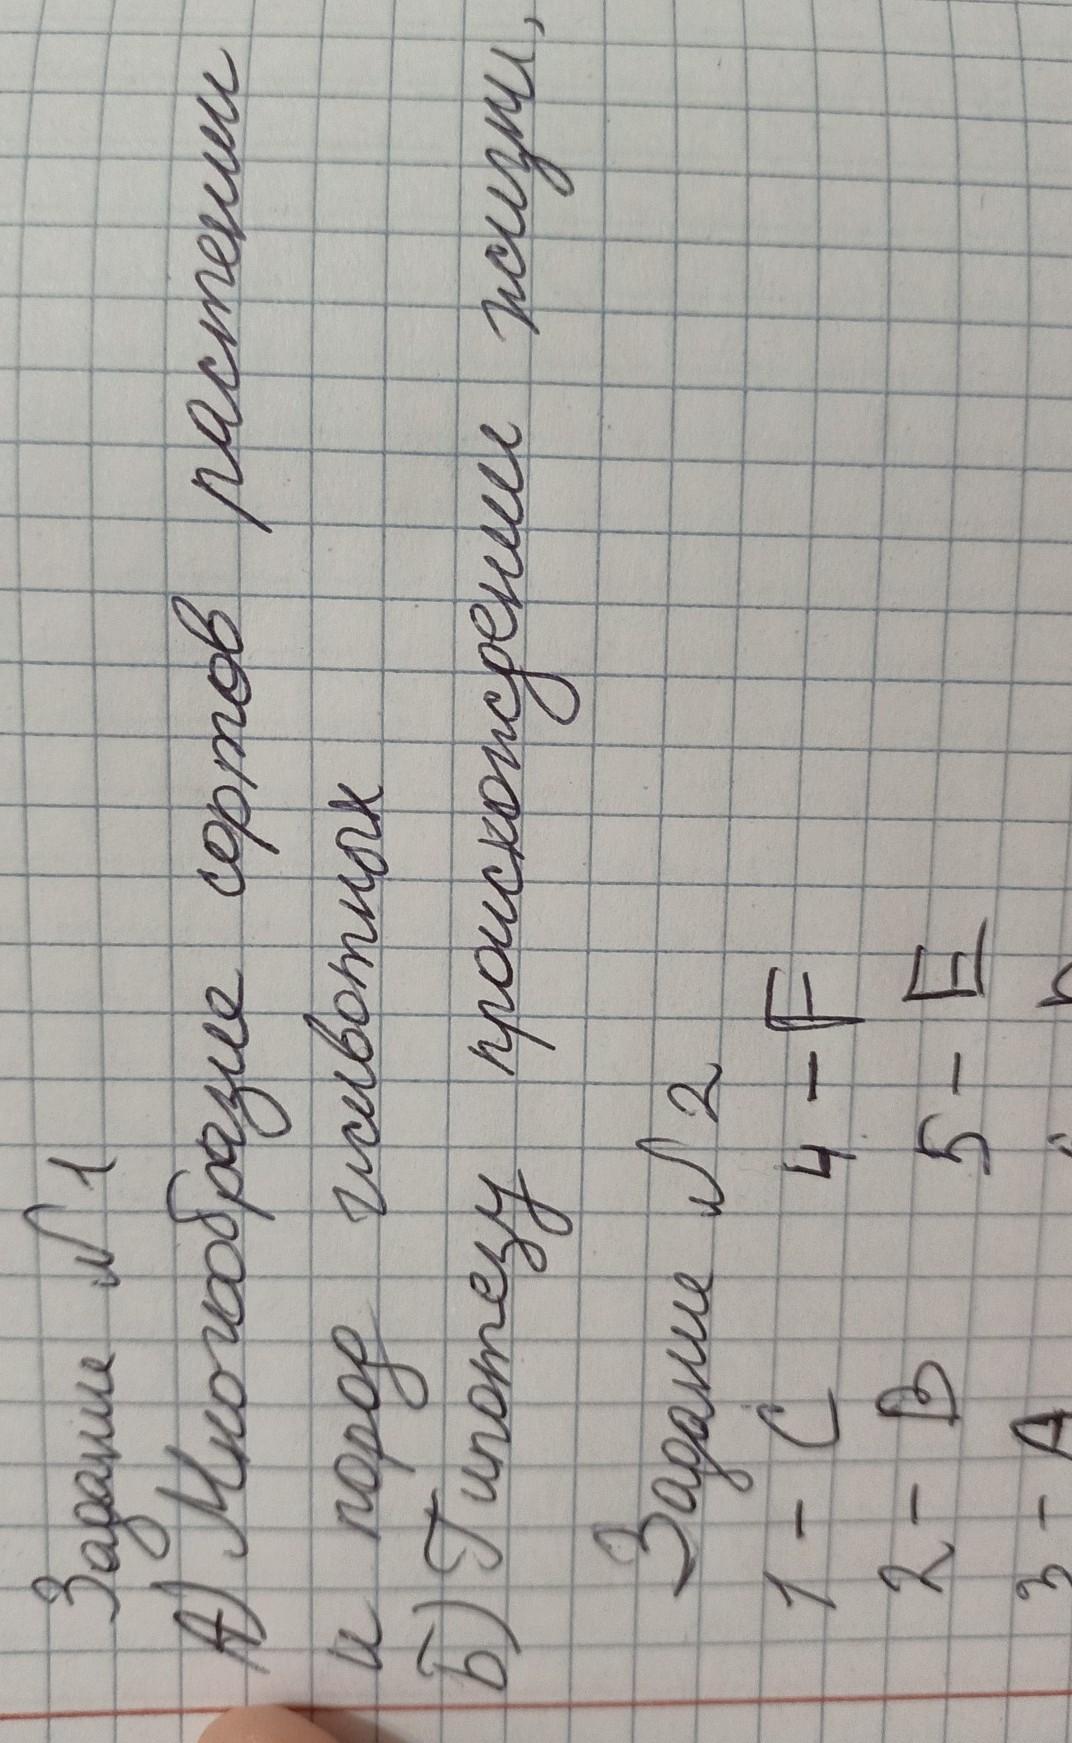 Задание №1
А) Многообразие сортов растении
и пород животных
Б) Гипотезу происхождение жизни,
Задание №2
1 - C 4 - F
2 - B 5 - E
3 - A